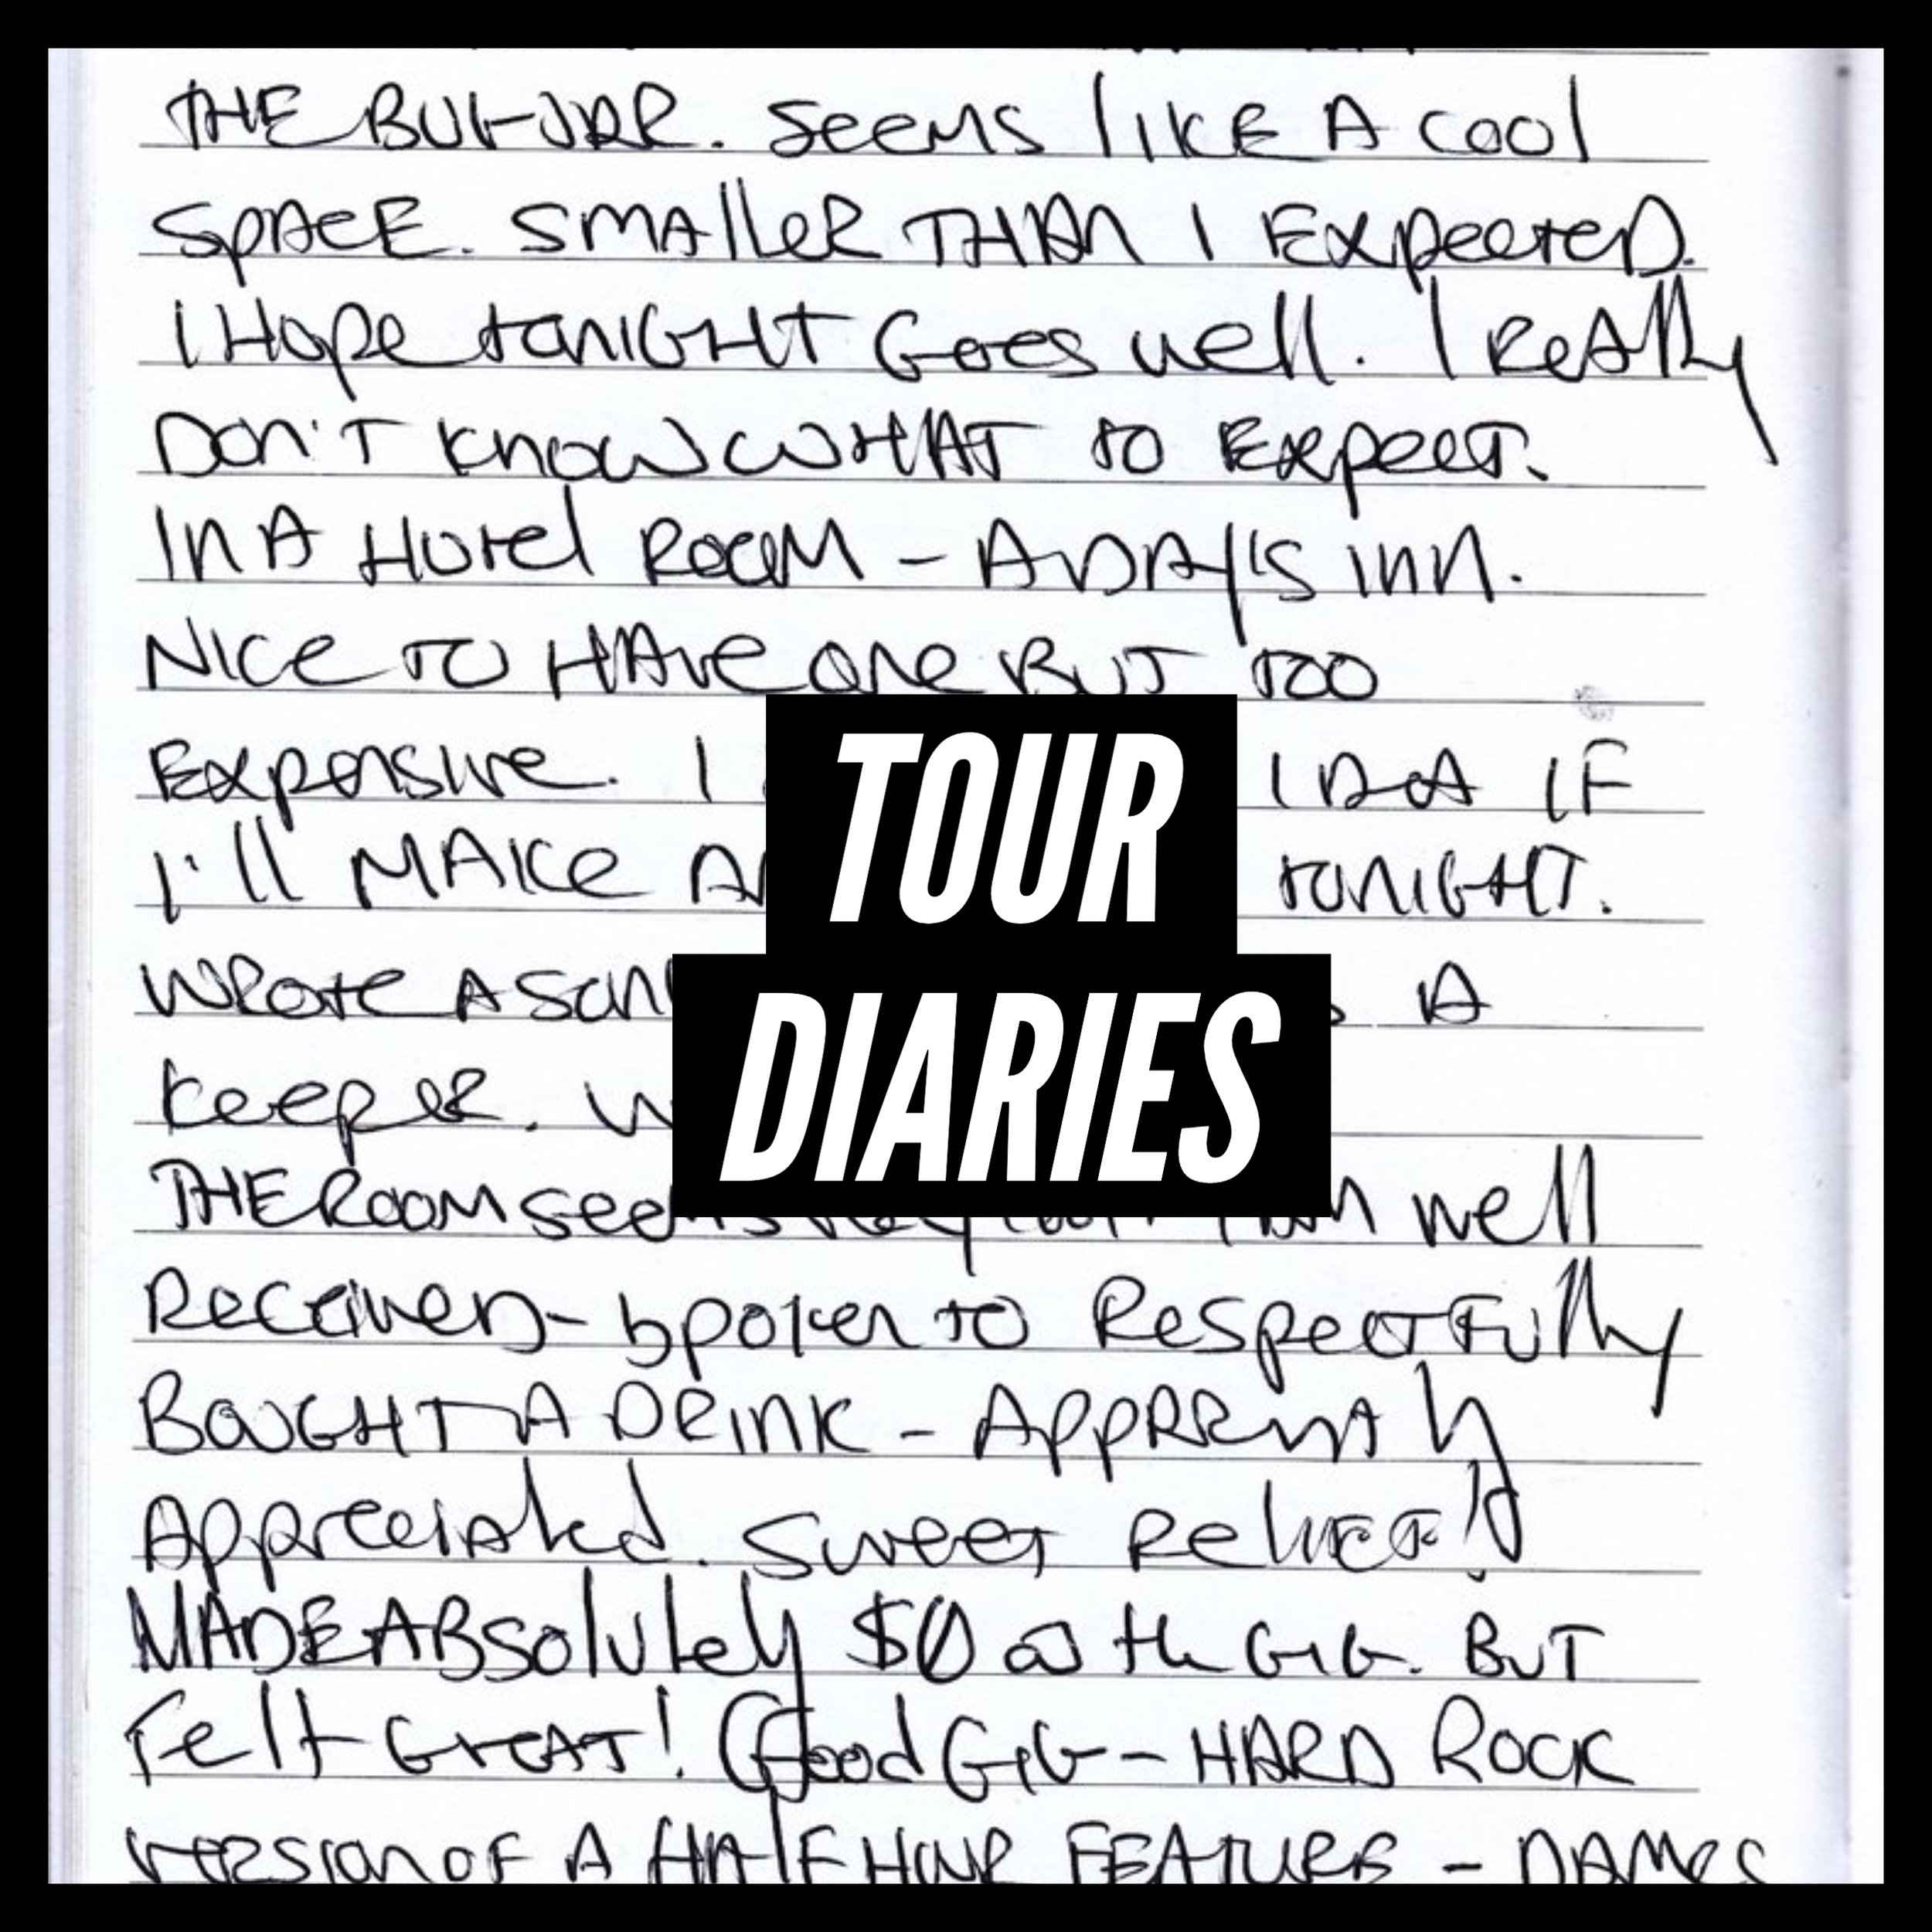 THE BUG JAR. Seems like A cool
SpACE. SmAlleR THAn I ExpecteD.
I Hope tonIGHT Goes well. I ReAlly
Don'T know WHAT to Expect.
In A Hotel Room - A DAy's inn.
Nice TO HAve one BUT too
Expensive. I
TOUR
IDEA IF
I'll MAKe
tonIGHT.
Wrote A
DIARIES
A
keeper.
THE Room seems very cool. I Am well
Received - spoken to RespectFully
BOUGHT A DRINK - AppARently
AppreciAted. Sweet Relief!
MADE ABsolutely $0 at the GIG. BUT
Felt GreAT! Good GIG - HARD Rock
version oF A HAlF HOUR FEATURE - DAMES